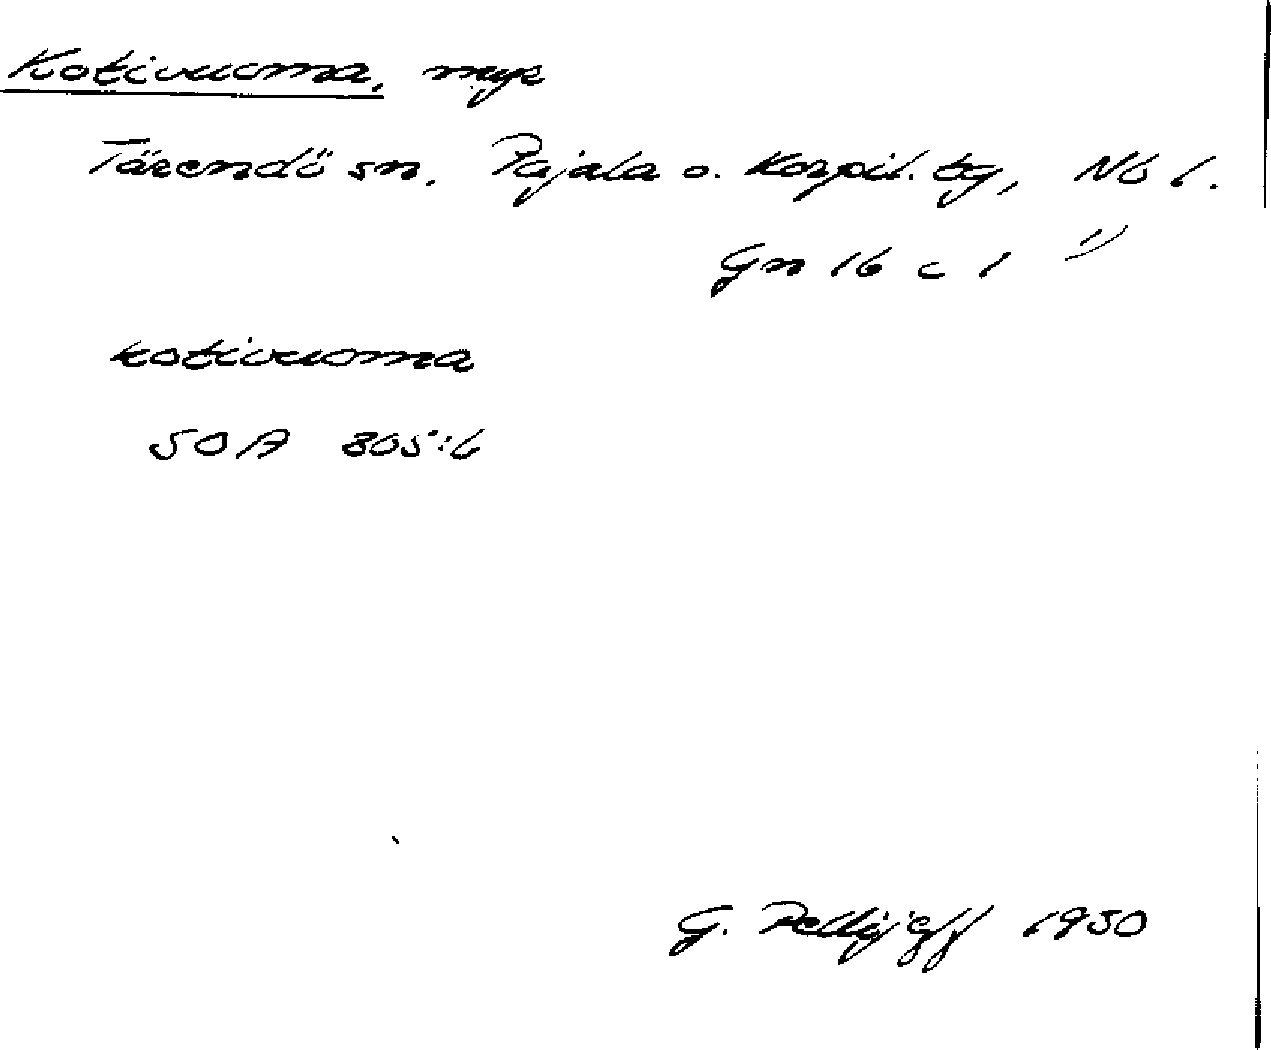 Kotivuoma, myr
Tärendö sn. Pajala o. Korpil. tg, Nb l.
Gn 16 c 1 1)
kotivuoma
SOA 805:6
G. Pellijeff 1950